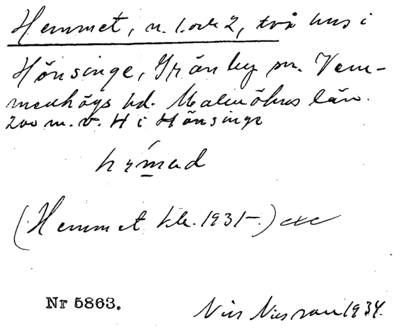 Hemmet, n. 1. och 2, två hus i
Hönsinge, Grönby sn. Vem-
menhögs hd. Malmöhus län.
200 m. v. H i Hönsinge
hѓmad
(Hemmet kk. 1931-)
Nr 5863.
Nils Nilsson 1934.